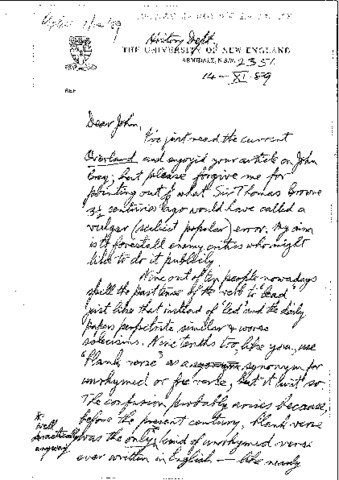 History Dept,
THE UNIVERSITY OF NEW ENGLAND
ARMIDALE, N.S.W. 2351.
14-XI-89
Dear John,
I've just read the current
Overland and enjoyed your article on John
but please forgive me for
pointing out what Sir Thomas Browne
3½ centuries ago would have called a
vulgar (scilicet popular) error. My aim
is to forestall enemy critics who might
like to do it publicly.
Nine out of ten people nowadays
spell the past tense of the verb to "lead"
just like that instead of 'led' and the daily
papers perpetrate similar & worse
solecisms. Nine tenths too, like you, use
"blank verse" as a synonym for
unrhymed or free verse, but it isn't so.
The confusion probably arises because,
before the present century, blank verse
was the only kind of unrhymed verse
well
practically
anyway
ever written in English — like nearly